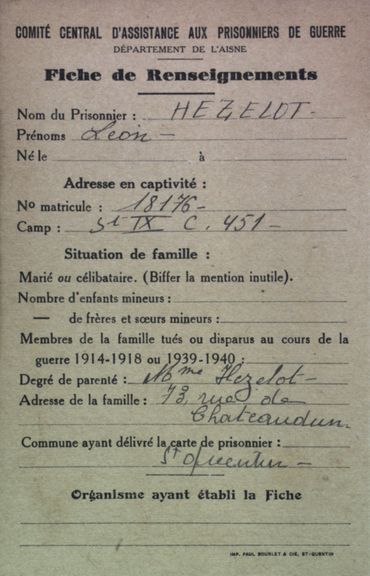 COMITÉ CENTRAL D'ASSISTANCE AUX PRISONNIERS DE GUERRE
DÉPARTEMENT DE L'AISNE
Fiche de Renseignements
Nom du Prisonnier : HEZELOT -
Prénoms Léon -
Né le à
Adresse en captivité :
No matricule : 18176 -
Camp : St IX C. 451 -
Situation de famille :
Marié ou célibataire. (Biffer la mention inutile).
Nombre d'enfants mineurs :
— de frères et sœurs mineurs :
Membres de la famille tués ou disparus au cours de la
guerre 1914-1918 ou 1939-1940 :
Degré de parenté : Mme Hezelot -
Adresse de la famille : 73, rue de
Chateaudun.
Commune ayant délivré la carte de prisonnier :
St Quentin -
Organisme ayant établi la Fiche
IMP. PAUL BOURLET & CIE, ST-QUENTIN